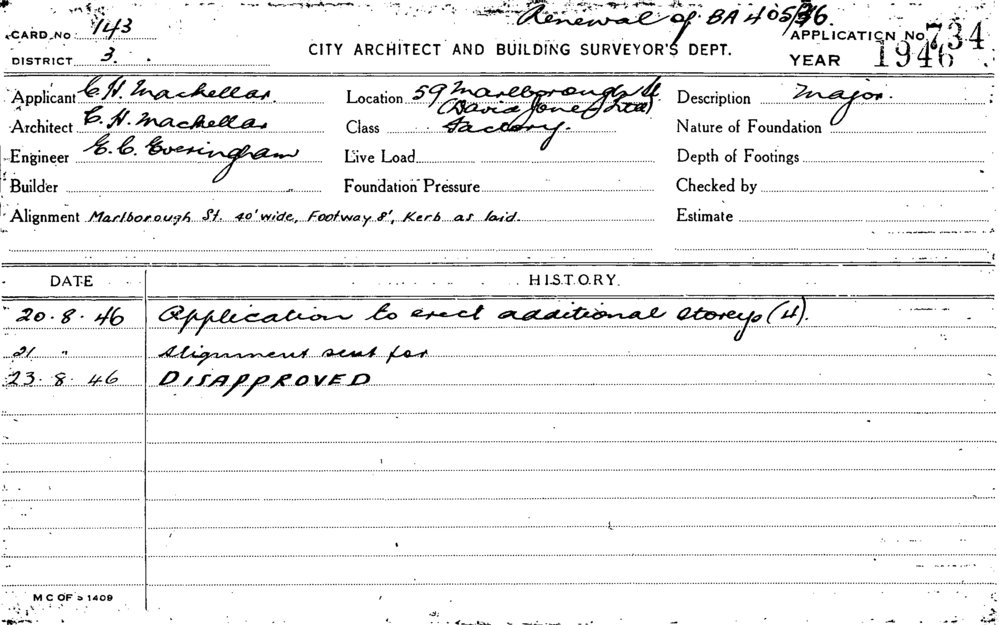 Renewal of BA 405/36.
CARD No 143
APPLICATION No 734
DISTRICT 3.
CITY ARCHITECT AND BUILDING SURVEYOR'S DEPT.
YEAR 1946
Applicant C. H. Mackellar. Location 59 Marlborough St Description Major.
(David Jones Ltd)
Architect C. H. Mackellar Class Factory. Nature of Foundation
Engineer E. C. Everingham Live Load Depth of Footings
Builder Foundation Pressure Checked by
Alignment Marlborough St. 40' wide, Footway 8', Kerb as laid. Estimate
DATE HISTORY.
20.8.46 Application to erect additional storeys (4).
21 " Alignment sent for
23.8.46 DISAPPROVED
M C OF S 1409